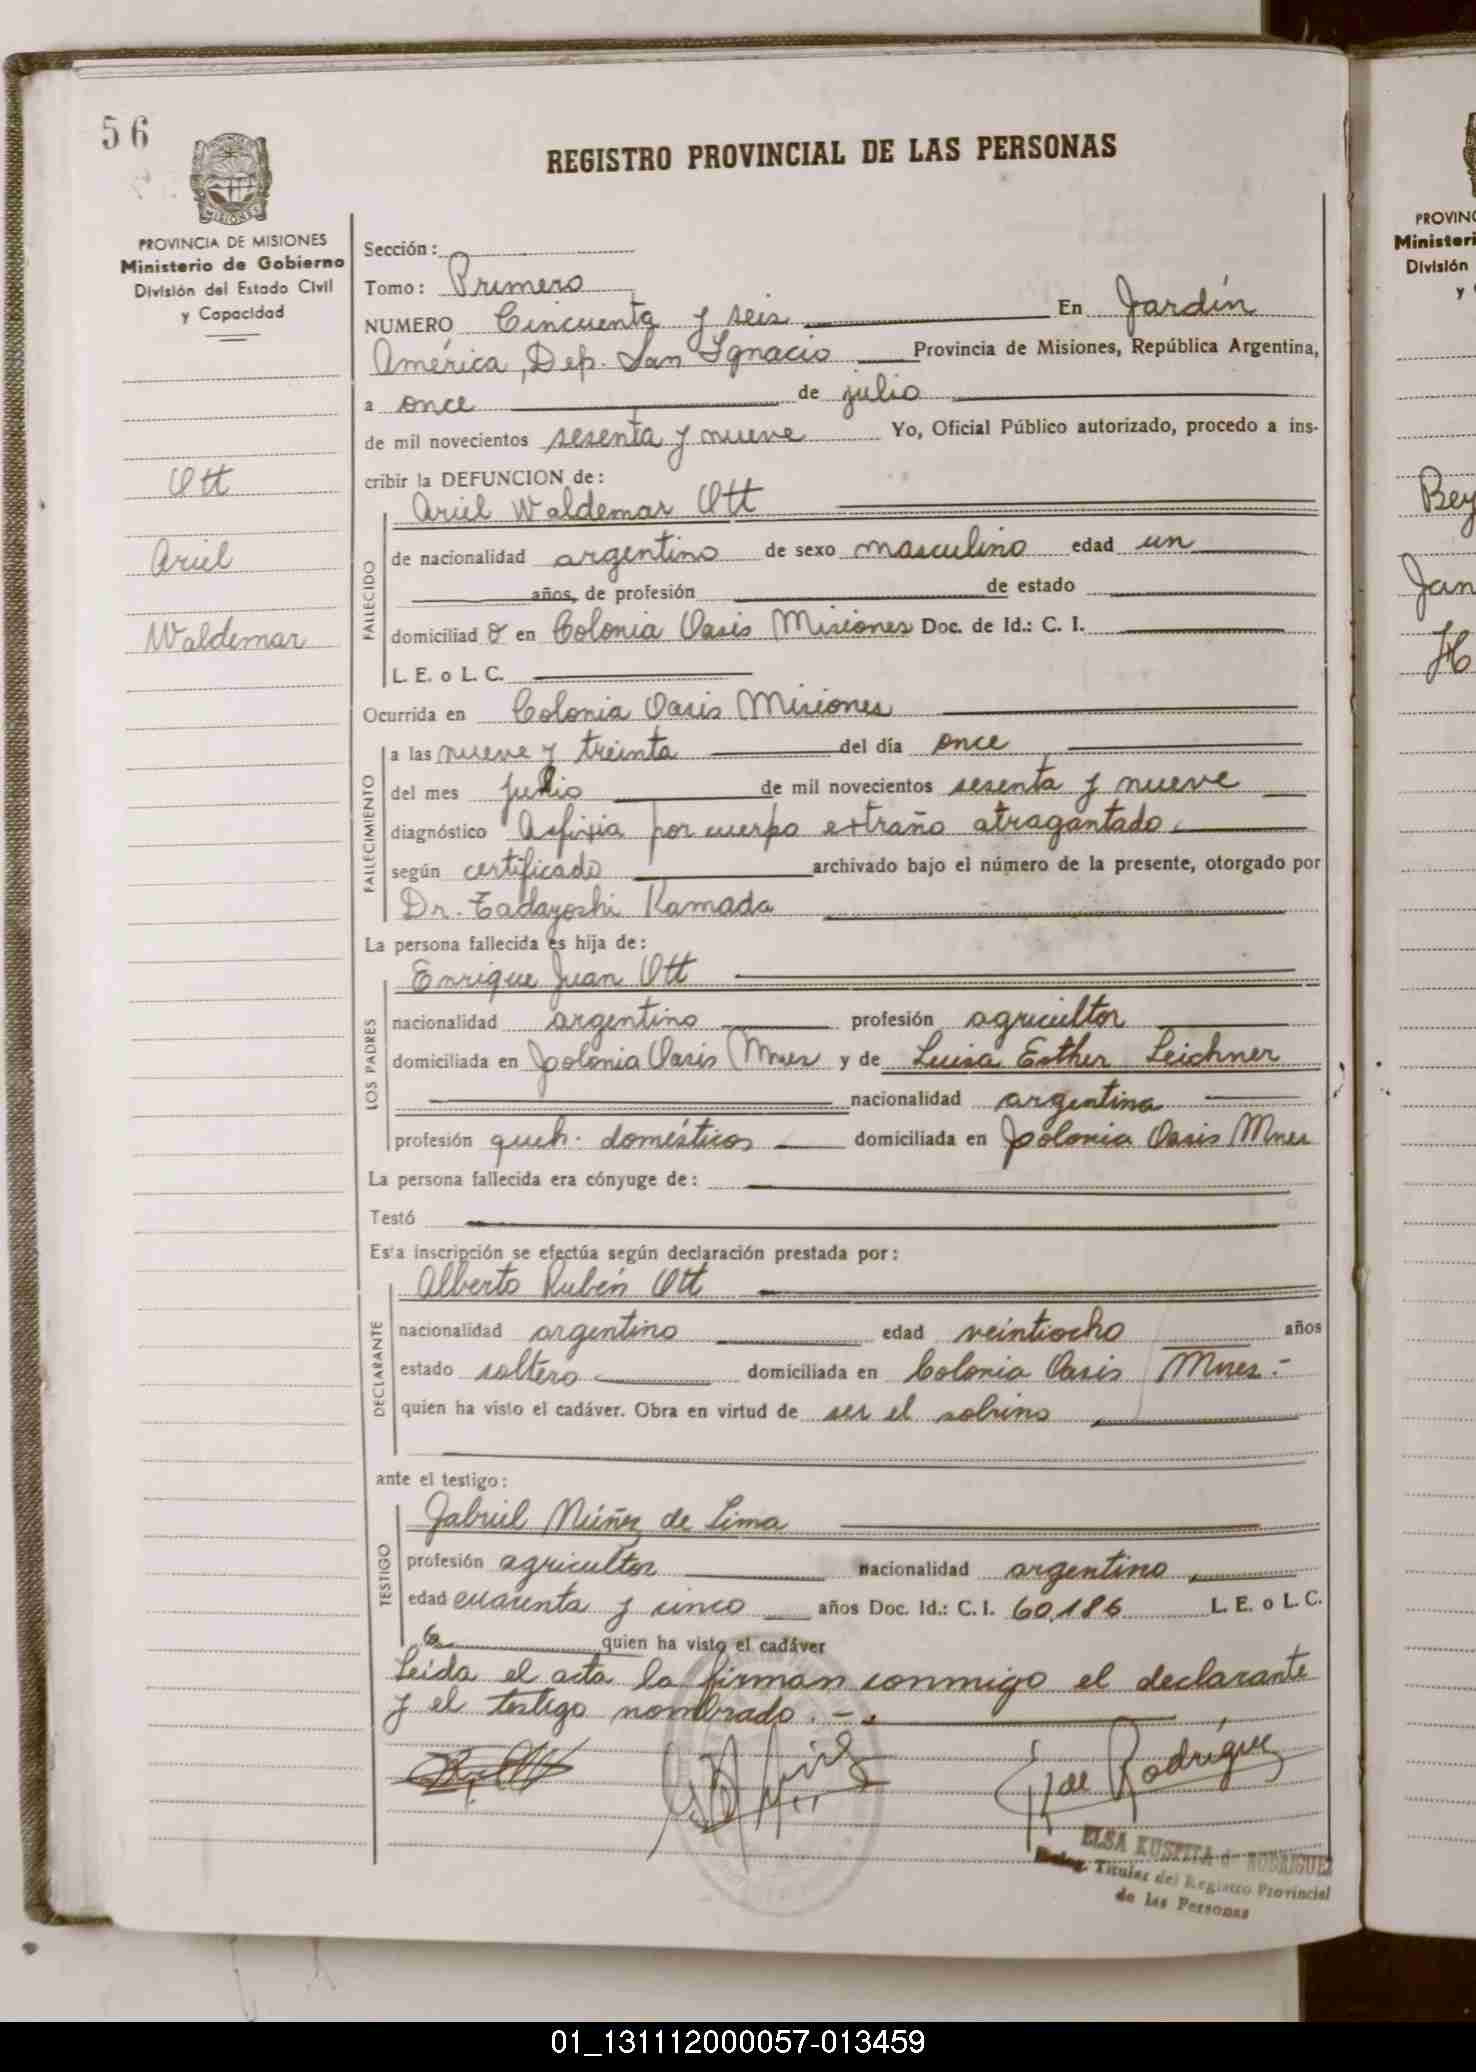 56
REGISTRO PROVINCIAL DE LAS PERSONAS
MISIONES
PROVINCIA DE MISIONES
Ministerio de Gobierno
División del Estado Civil
y Capacidad
Ott
Ariel
Waldemar
Sección:
Tomo: Primero
NUMERO Cincuenta y seis En Jardín
América, Dep. San Ignacio Provincia de Misiones, República Argentina,
a once de julio
de mil novecientos sesenta y nueve Yo, Oficial Público autorizado, procedo a ins-
cribir la DEFUNCION de:
FALLECIDO
Ariel Waldemar Ott
de nacionalidad argentino de sexo masculino edad un
años, de profesión de estado
domiciliado en Colonia Oasis Misiones Doc. de Id.: C. I.
L. E. o L. C.
Ocurrida en Colonia Oasis Misiones
FALLECIMIENTO
a las nueve y treinta del día once
del mes julio de mil novecientos sesenta y nueve
diagnóstico Asfixia por cuerpo extraño atragantado.
según certificado archivado bajo el número de la presente, otorgado por
Dr. Tadayoshi Kamada
La persona fallecida es hija de:
LOS PADRES
Enrique Juan Ott
nacionalidad argentino profesión agricultor
domiciliada en Colonia Oasis Mnes y de Luisa Esther Leichner
nacionalidad argentina
profesión queh. domésticos domiciliada en Colonia Oasis Mnes
La persona fallecida era cónyuge de:
Testó
Esta inscripción se efectúa según declaración prestada por:
DECLARANTE
Alberto Rubén Ott
nacionalidad argentino edad veintiocho años
estado soltero domiciliada en Colonia Oasis Mnes.-
quien ha visto el cadáver. Obra en virtud de ser el sobrino
ante el testigo:
TESTIGO
Gabriel Núñez de Lima
profesión agricultor nacionalidad argentino
edad cuarenta y cinco años Doc. Id.: C. I. 60.186 L. E. o L. C.
quien ha visto el cadáver
Leída el acta la firman conmigo el declarante
y el testigo nombrado.-.
de Rodríguez
ELSA KUSPITA de RODRIGUEZ
Deleg. Titular del Registro Provincial
de las Personas
PROVINC
Ministeri
División
y
Bey
Jan
01_131112000057-013459